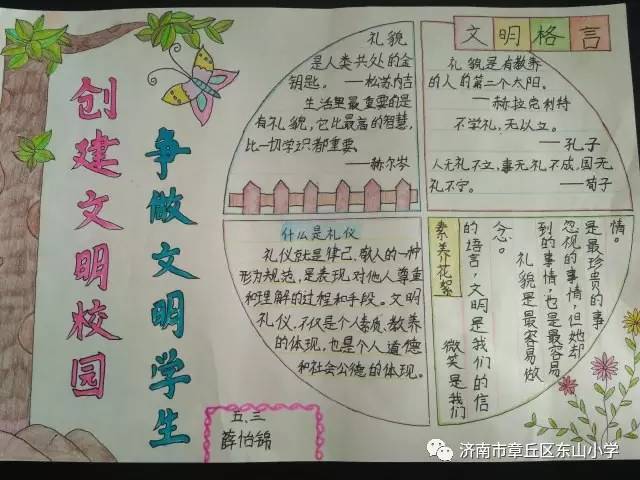 创建文明校园
争做文明学生
礼貌
是人类共处的金
钥匙。—松苏内吉
生活里最重要的是
有礼貌，它比最高的智慧，
比一切学识都重要
—赫尔岑
文明格言
礼貌是有教养
的人的第二个太阳。
—赫拉克利特
不学礼，无以立。
—孔子
人无礼不立，事无礼不成，国无
礼不宁。
—荀子
什么是礼仪
礼仪就是律己、敬人的一种
形为规范，是表现对他人尊重
和理解的过程和手段。文明
礼仪，不仅是个人素质、教养
的体现，也是个人道德
和社会公德的体现。
素养花絮
微笑是我们
的语言，文明是我们的信
念。
礼貌是最容易做
到的事情，也是最容易
忽视的事情，但她却
是最珍贵的事
情。
五.三
薛怡锦
济南市章丘区东山小学